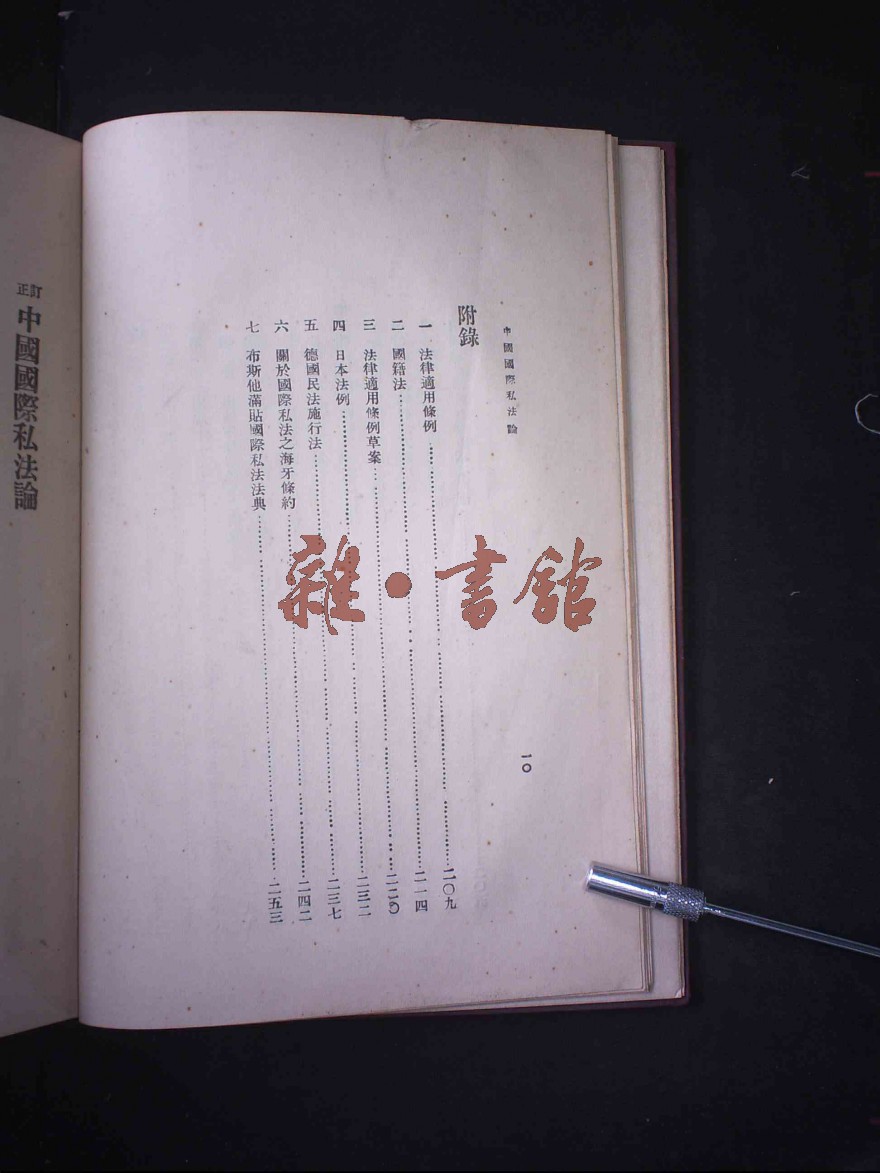 中國國際私法論
一〇
附錄
一 法律適用條例 二〇九
二 國籍法 二一四
三 法律適用條例草案 二二〇
四 日本法例 二三二
五 德國民法施行法 二三七
六 關於國際私法之海牙條約 二四二
七 布斯他滿貼國際私法法典 二五三
訂正
中國國際私法論
雜·書館